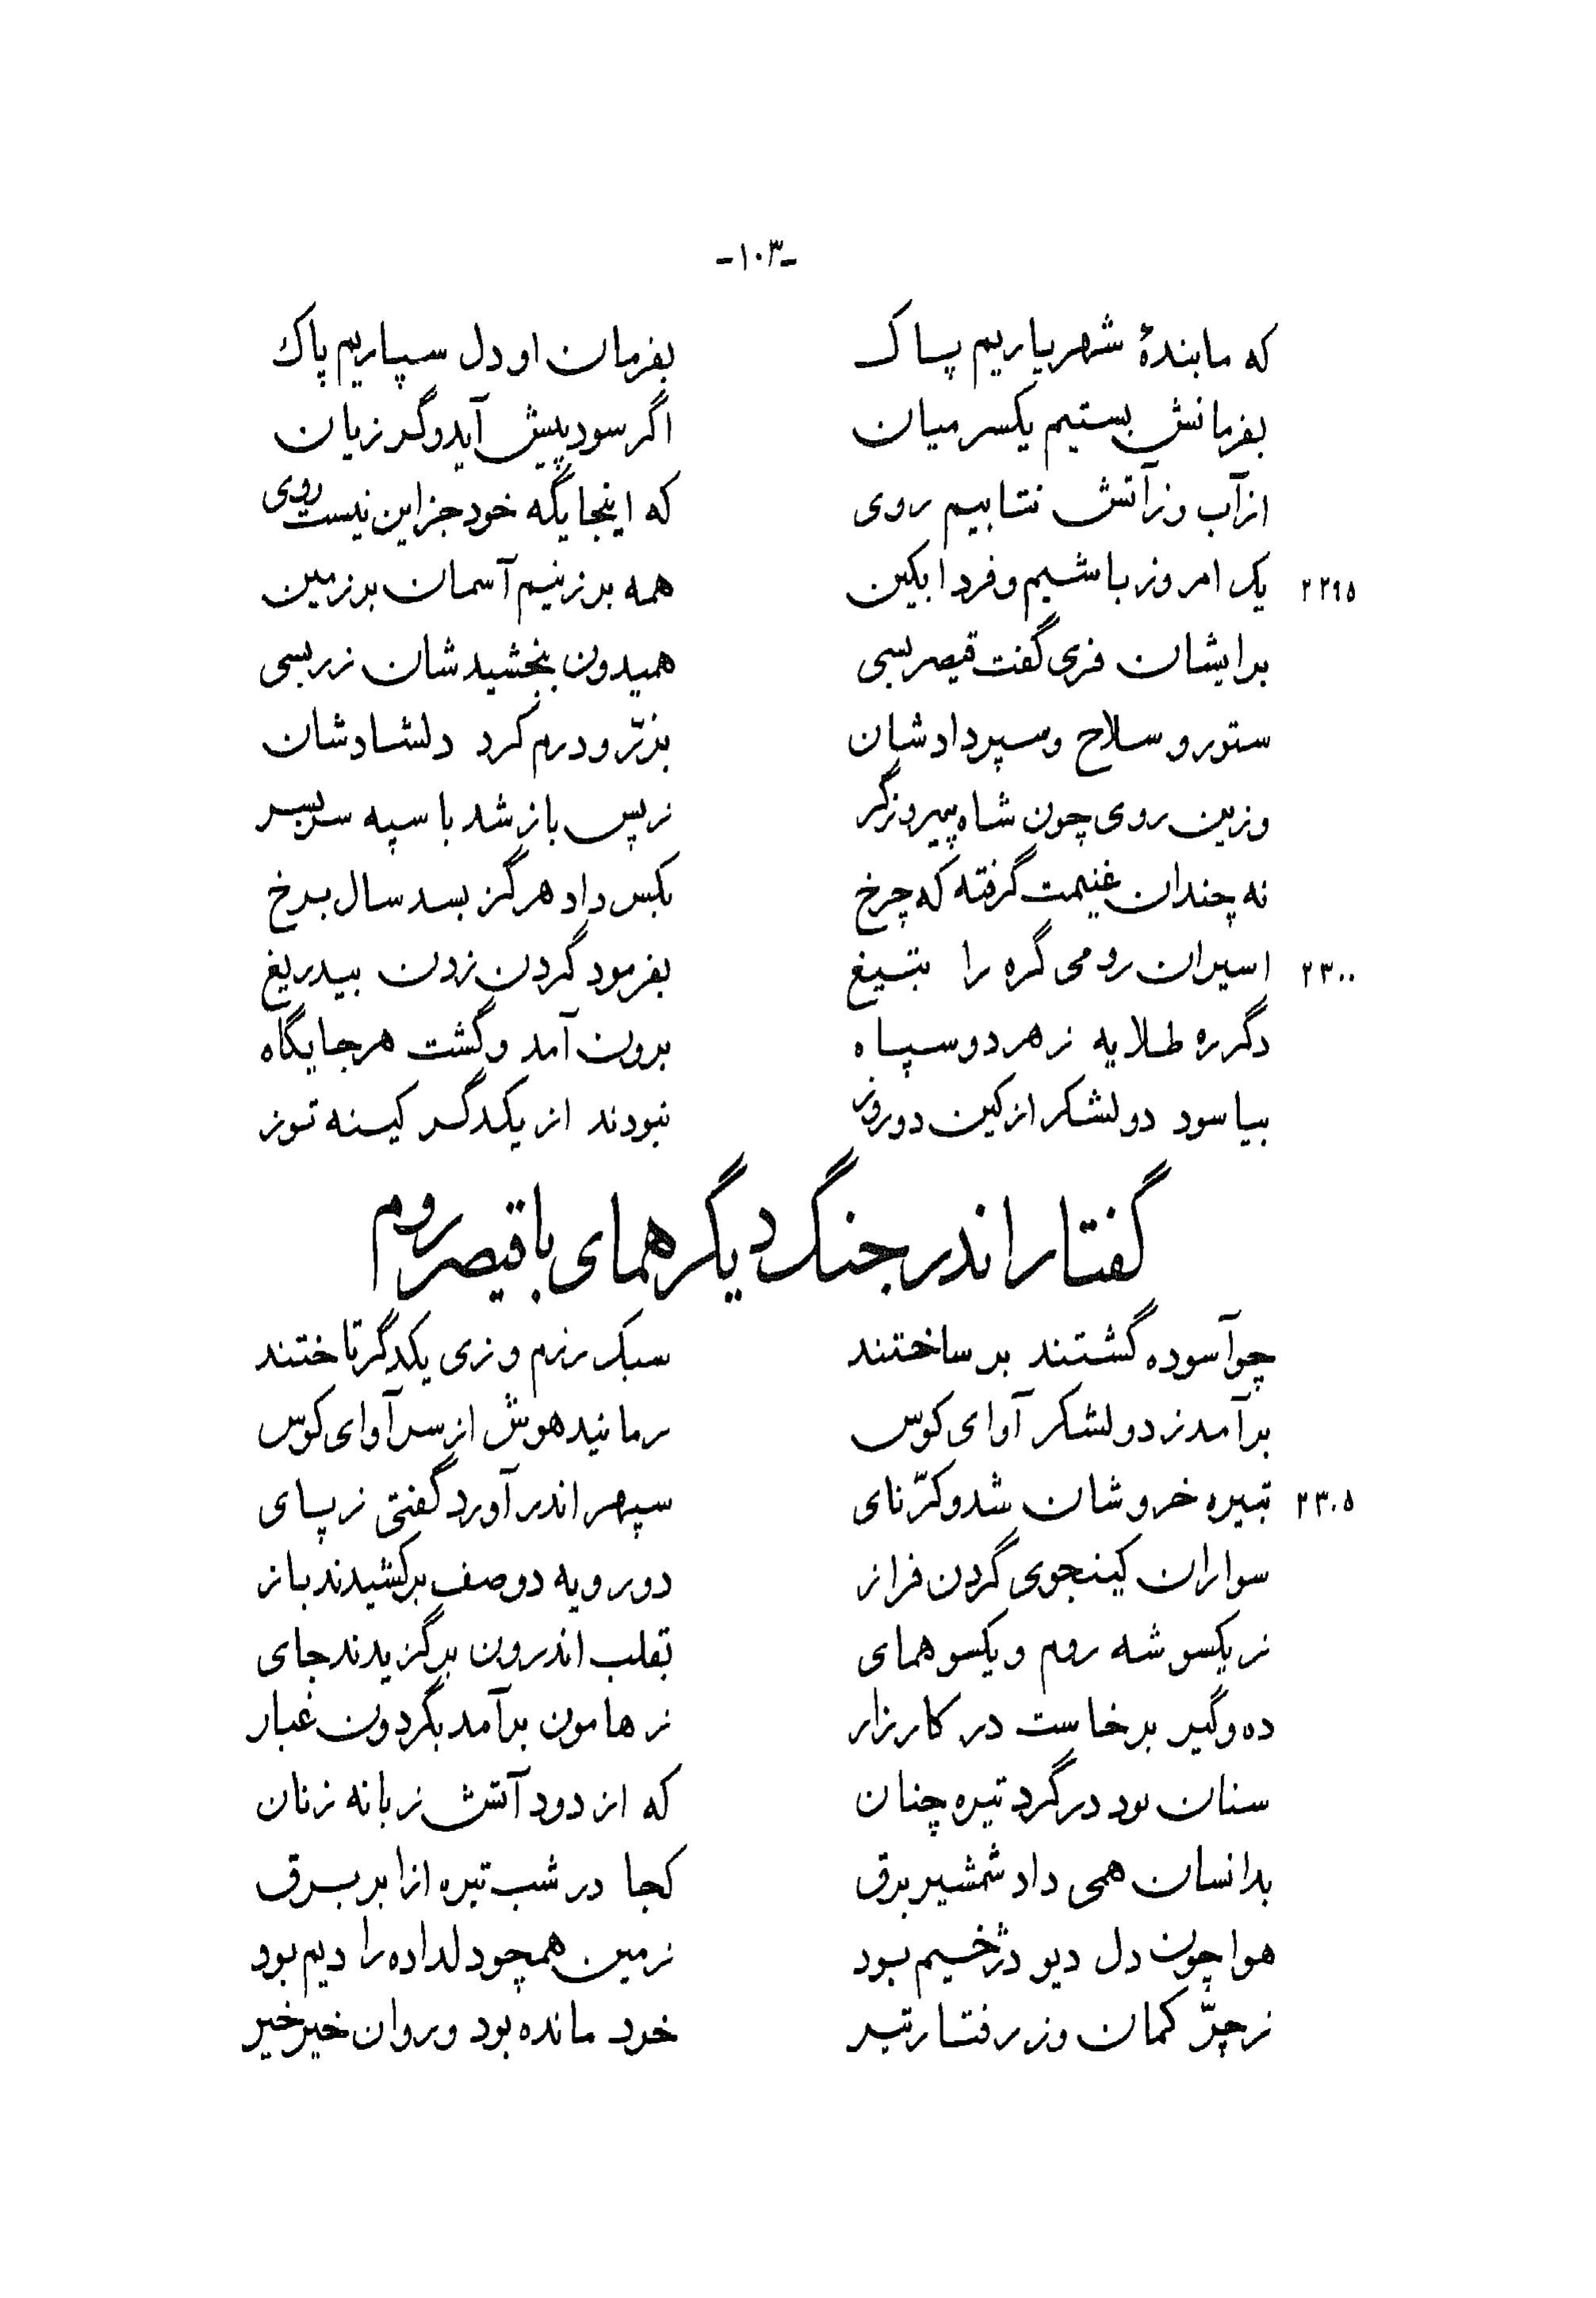 -۱۰۳-
که ما بندهٔ شهریاریم پاک بفرمان او دل سپاریم پاک
بفرمانش بستیم یکسر میان اگر سود پیش آید وگر زیان
از آب وز آتش نتابیم روی که اینجایگه خود جز این نیست روی
۲۲۹۵ یک امروز باشیم و فردا بکین همه بر زنیم آسمان بر زمین
بر ایشان فری گفت قیصر بسی همیدون ببخشیدشان زر بسی
ستور و سلاح و سپر دادشان بزرّ و درم کرد دلشادشان
وزین روی چون شاه پیروزگر ز پس باز شد با سپه سربسر
نه چندان غنیمت گرفته که چرخ بکس داد هرگز بسد سال برخ
۲۳۰۰ اسیران رومی گره را بتیغ بفرمود گردن زدن بیدریغ
دگرره طلایه ز هر دو سپاه برون آمد و گشت هر جایگاه
بیاسود دو لشکر از کین دو روز نبودند از یکدگر کینه توز
گفتار اندر جنگ دیگر همای با قیصر روم
چو آسوده گشتند بر ساختند سبک رزم و زی یکدگر تاختند
برآمد ز دو لشکر آوای کوس رمانید هوش از سر آوای کوس
۲۳۰۵ تبیره خروشان شد و کرّنای سپهر اندر آورد گفتی ز پای
سواران کینجوی گردن فراز دو رویه دو صف برکشیدند باز
ز یکسو شه روم و یکسو همای بقلب اندرون برگزیدند جای
ده و گیر برخاست در کارزار ز هامون برآمد بگردون غبار
سنان بود در گرد تیره چنان که از دود آتش زبانه زنان
بدانسان همی داد شمشیر برق کجا در شب تیره از ابر برق
هوا چون دل دیو دژخیم بود زمین همچو دلداده را دیم بود
ز چرّ کمان وز رفتار تیر خرد مانده بود و روان خیرخیر